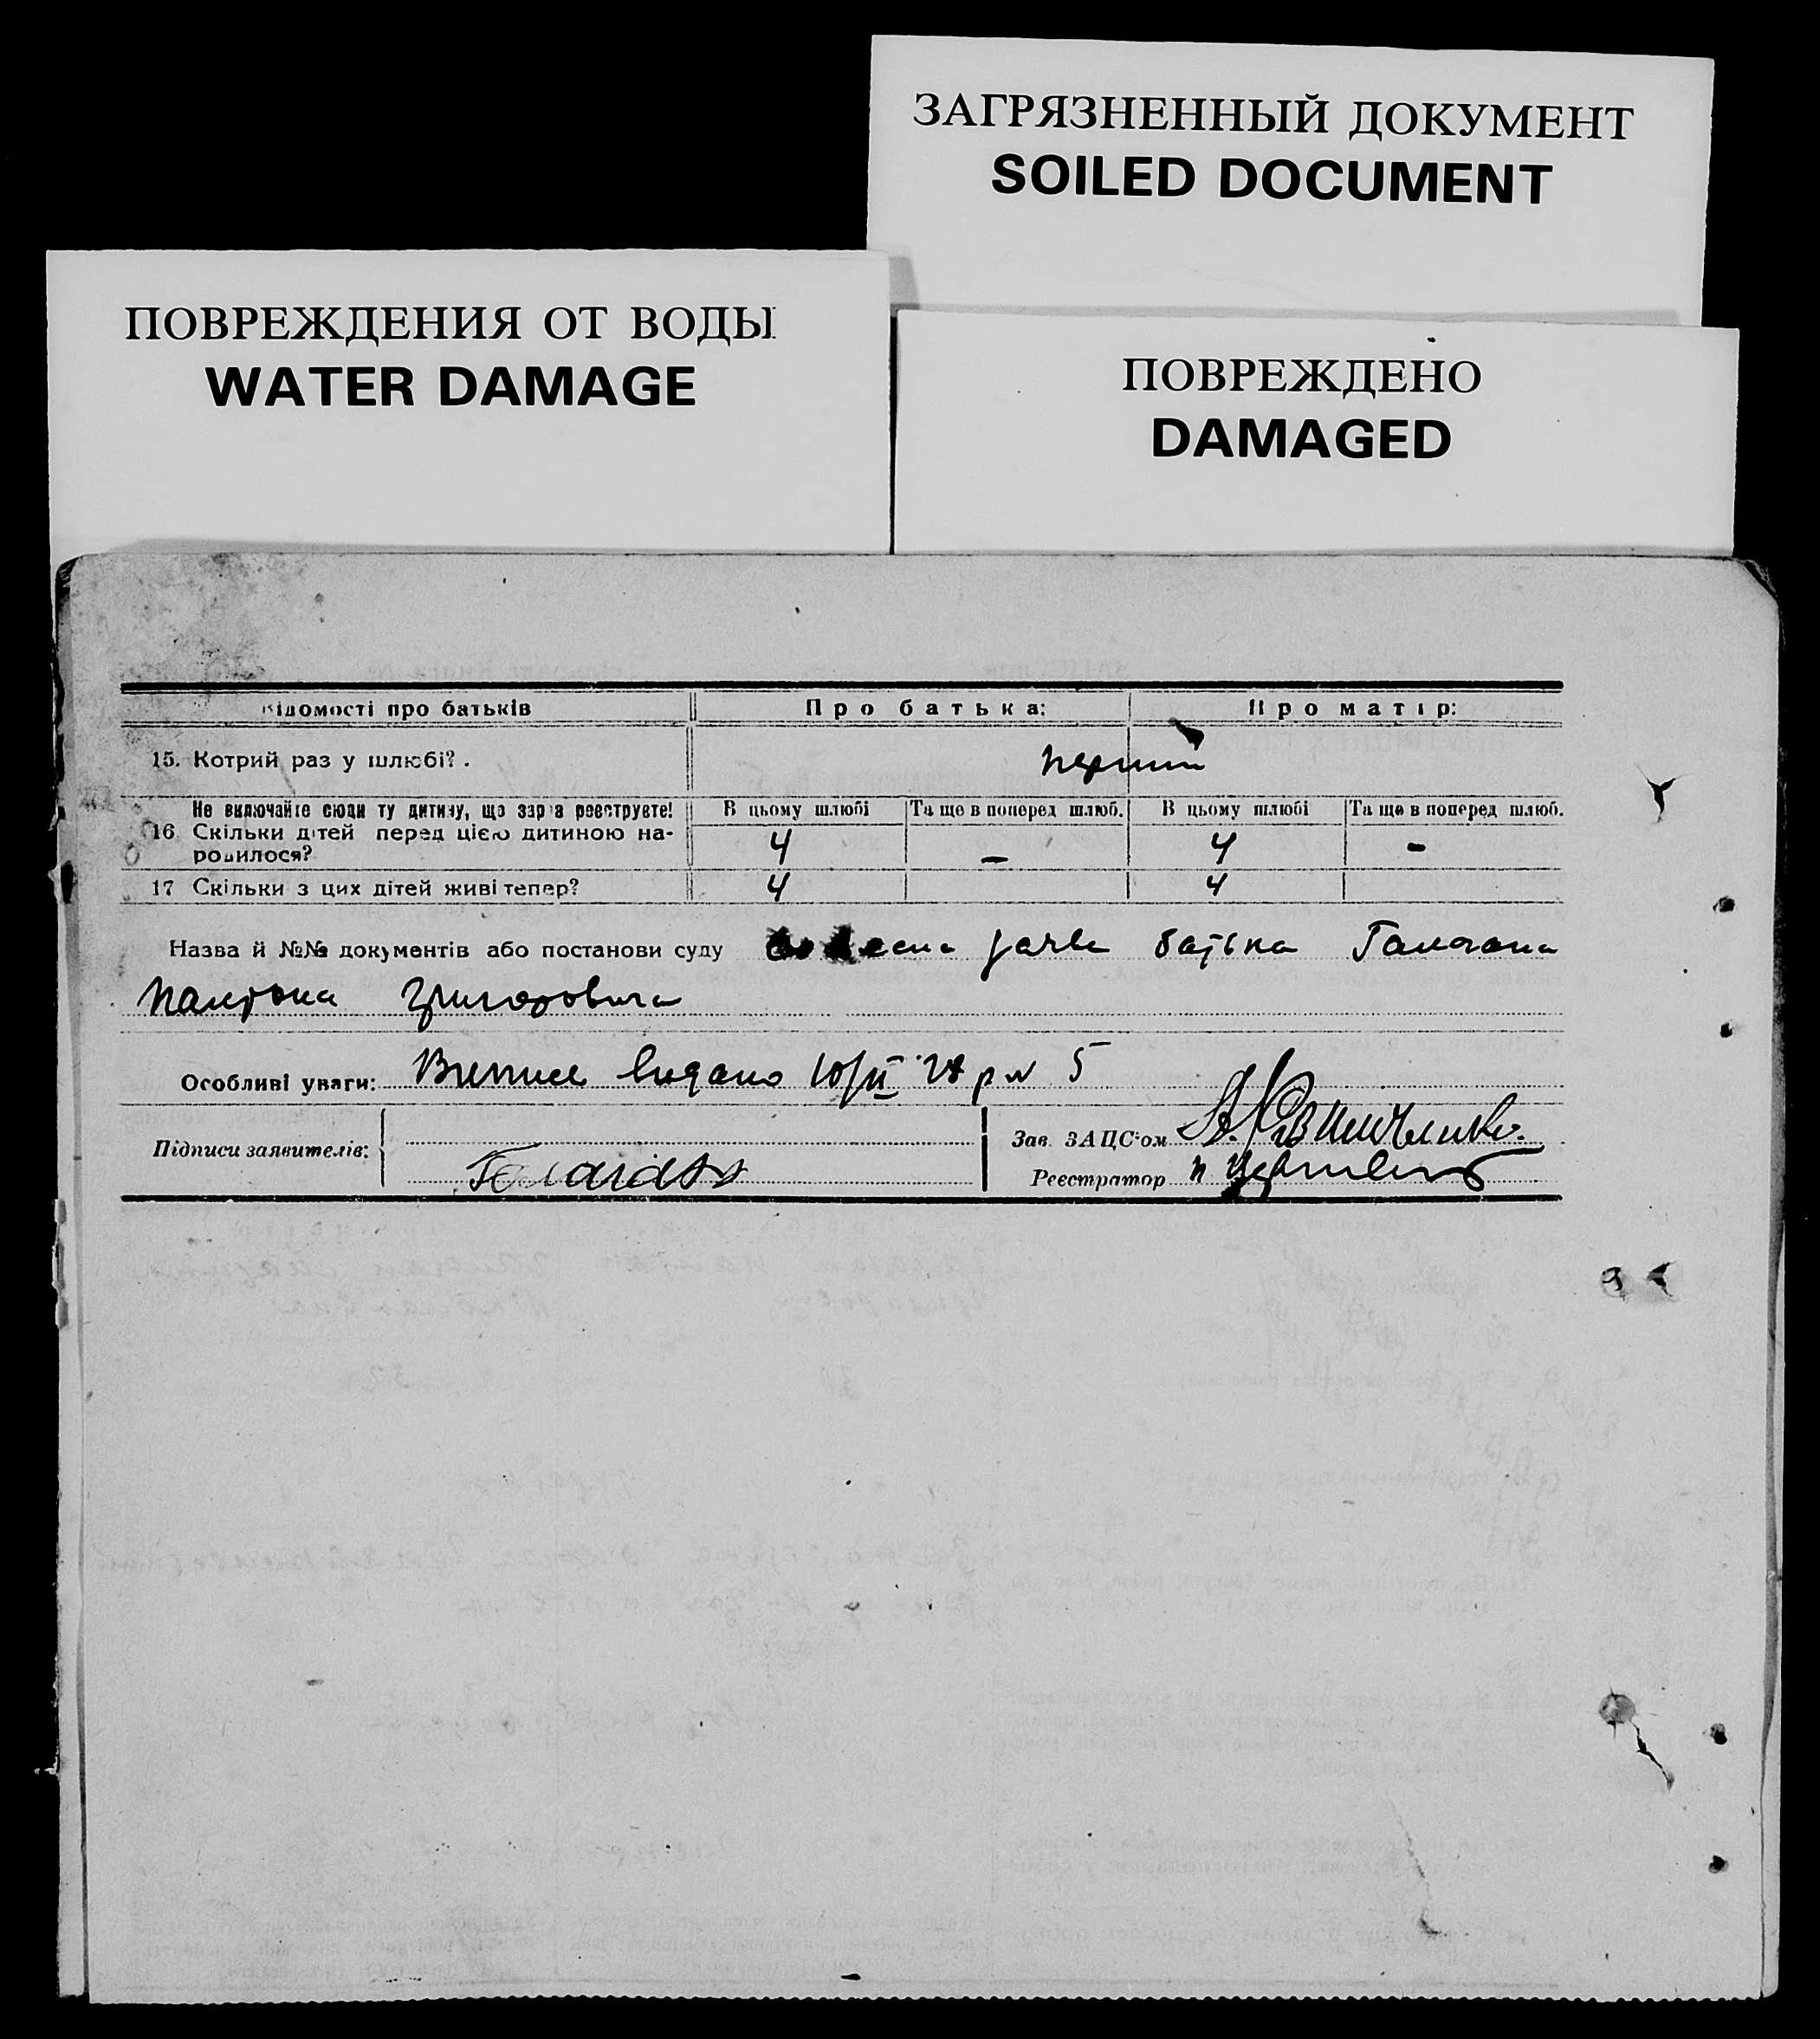 ЗАГРЯЗНЕННЫЙ ДОКУМЕНТ
SOILED DOCUMENT
ПОВРЕЖДЕНИЯ ОТ ВОДЫ
WATER DAMAGE
ПОВРЕЖДЕНО
DAMAGED
Відомості про батьків Про батька: Про матір:
15. Котрий раз у шлюбі? . перший
Не включайте сюди ту дитину, що зараз реєструєте! В цьому шлюбі Та ще в поперед шлюб. В цьому шлюбі Та ще в поперед шлюб.
16 Скільки дітей перед цією дитиною на- 4 – 4 –
родилося?
17 Скільки з цих дітей живі тепер? 4 4
Назва й №№ документів або постанови суду батька
Григоровича
Особливі уваги: Виписа видано 10/II 28 р № 5
Підписи заявителів:
Зав. ЗАЦС'ом
Реєстратор